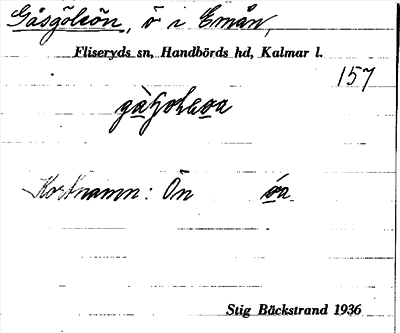 Gåsgölsön, ö i Emån,
Fliseryds sn, Handbörds hd, Kalmar l.
157
Kortnamn: Ön
Stig Bäckstrand 1936